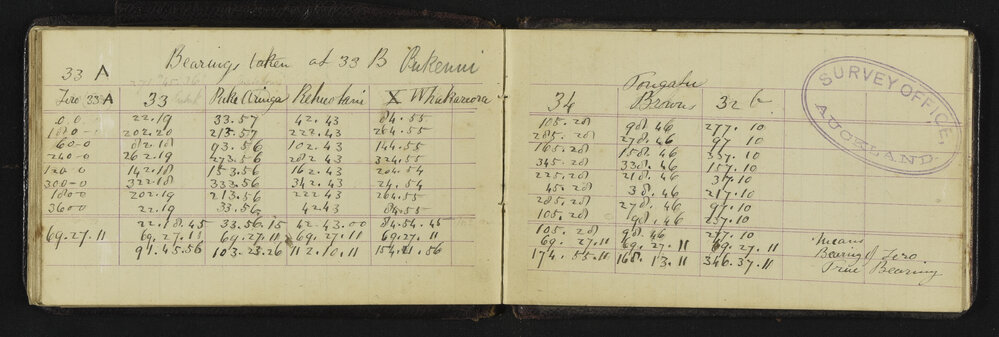 33 A Bearings taken at 33 B Pukenui
Zero 33 A 33 Puke Aringa Rehuotani X Whakarora
0.0 22.19 33.57 42.43 84.55
180-0 202.20 213.57 222.43 264.55
60-0 82.18 93.56 102.43 144.55
240-0 262.19 273.56 282.43 324.55
120-0 142.18 153.56 162.43 204.54
300-0 322.18 333.56 342.43 24.54
180-0 202.19 213.56 222.43 264.55
360-0 22.19 33.56 42.43 84.55
22.18.45 33.56.15 42.43.00 84.54.45
69.27.11 69.27.11 69.27.11 69.27.11 69.27.11
91.45.56 103.23.26 112.10.11 154.21.56
34 Browns 32 b
105.28 98.46 277.10
285.28 278.46 97.10
165.28 158.46 337.10
345.28 338.46 157.10
225.28 218.46 37.10
45.28 38.46 217.10
285.28 278.46 97.10
105.28 98.46 277.10
105.28 98.46 277.10 Means
69.27.11 69.27.11 69.27.11 Bearing of Zero
174.55.11 168.13.11 346.37.11 True Bearing
SURVEY OFFICE,
AUCKLAND.